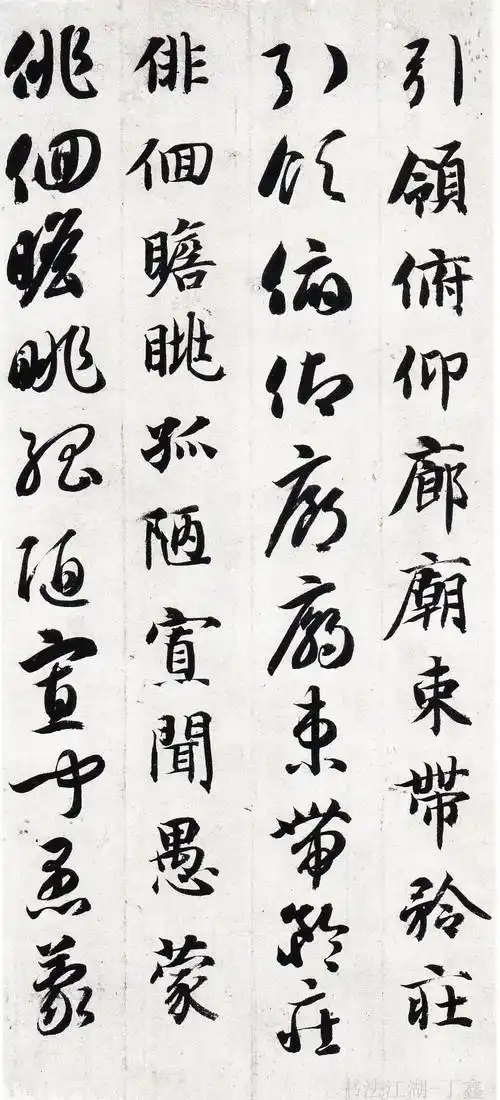 引領俯仰廊廟束帶矜莊
引領俯仰廊廟束帶矜莊
俳佪瞻眺孤陋寡聞愚蒙
俳佪瞻眺孤陋寡聞愚蒙
书法江湖-丁鑫